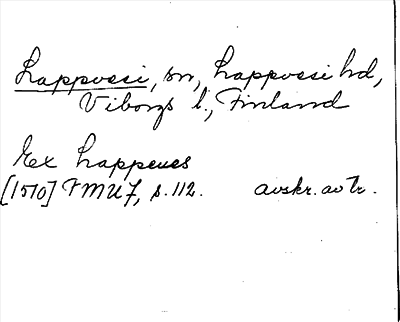 Lappvesi, sn, Lappvesi hd,
Viborgs l., Finland
Ex Lappeues
[1570] FMU 7, s. 112. avskr. av tr.